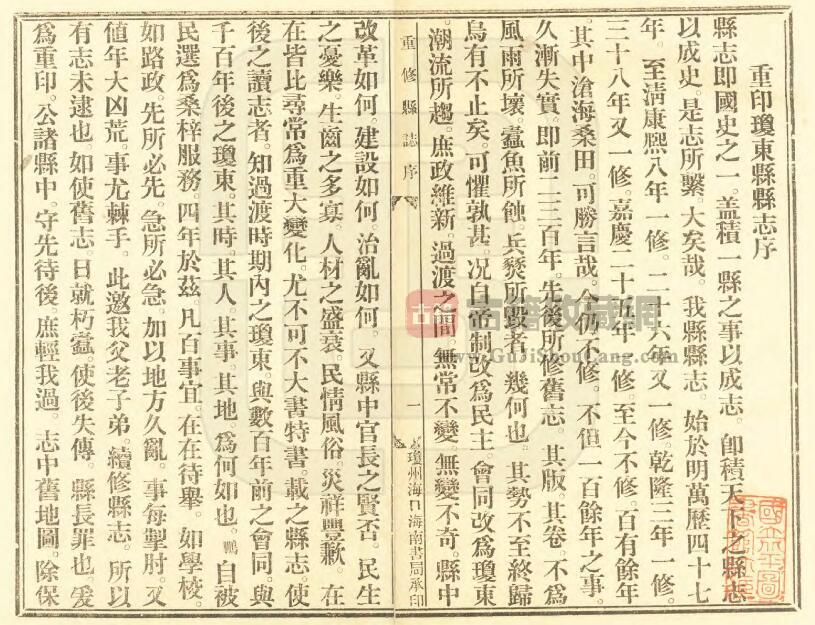 重印瓊東縣縣志序
縣志卽國史之一。蓋積一縣之事以成志。卽積天下之縣志
以成史。是志所繫。大矣哉。我縣縣志。始於明萬歷四十七
年。至淸康熙八年一修。二十六年又一修。乾隆三年一修。
三十八年又一修。嘉慶二十五年一修。至今不修。百有餘年
其中滄海桑田。可勝言哉。今仍不修。不但一百餘年之事。
久漸失實。卽前二三百年。先後所修舊志。其版。其卷。不爲
風雨所壞。蠹魚所蝕。兵燹所毀者。幾何也。其勢不至終歸
烏有不止矣。可懼孰甚。况自帝制改爲民主。會同改爲瓊東
潮流所趨。庶政維新。過渡之間。無常不變。無變不奇。縣中
重修縣誌序
一
瓊州海口海南書局承印
改革如何。建設如何。治亂如何。又縣中官長之賢否。民生
之憂樂。生齒之多寡。人材之盛衰。民情風俗。災祥豐歉。在
在皆比尋常爲重大變化。尤不可不大書特書。載之縣志。使
後之讀志者。知過渡時期內之瓊東。與數百年前之會同。與
千百年後之瓊東。其時。其人。其事。其地。爲何如也。鵬自被
民選爲桑梓服務。四年於茲。凡百事宜。在在待舉。如學校。
如路政。先所必先。急所必急。加以地方久亂。事每掣肘。又
値年大凶荒。事尤棘手。此邀我父老子弟。續修縣志。所以
有志未逮也。如使舊志。日就朽蠹。使後失傳。縣長罪也。爰
爲重印。公諸縣中。守先待後。庶輕我過。志中舊地圖。除保
古籍收藏網
www.GuJiShouCang.com